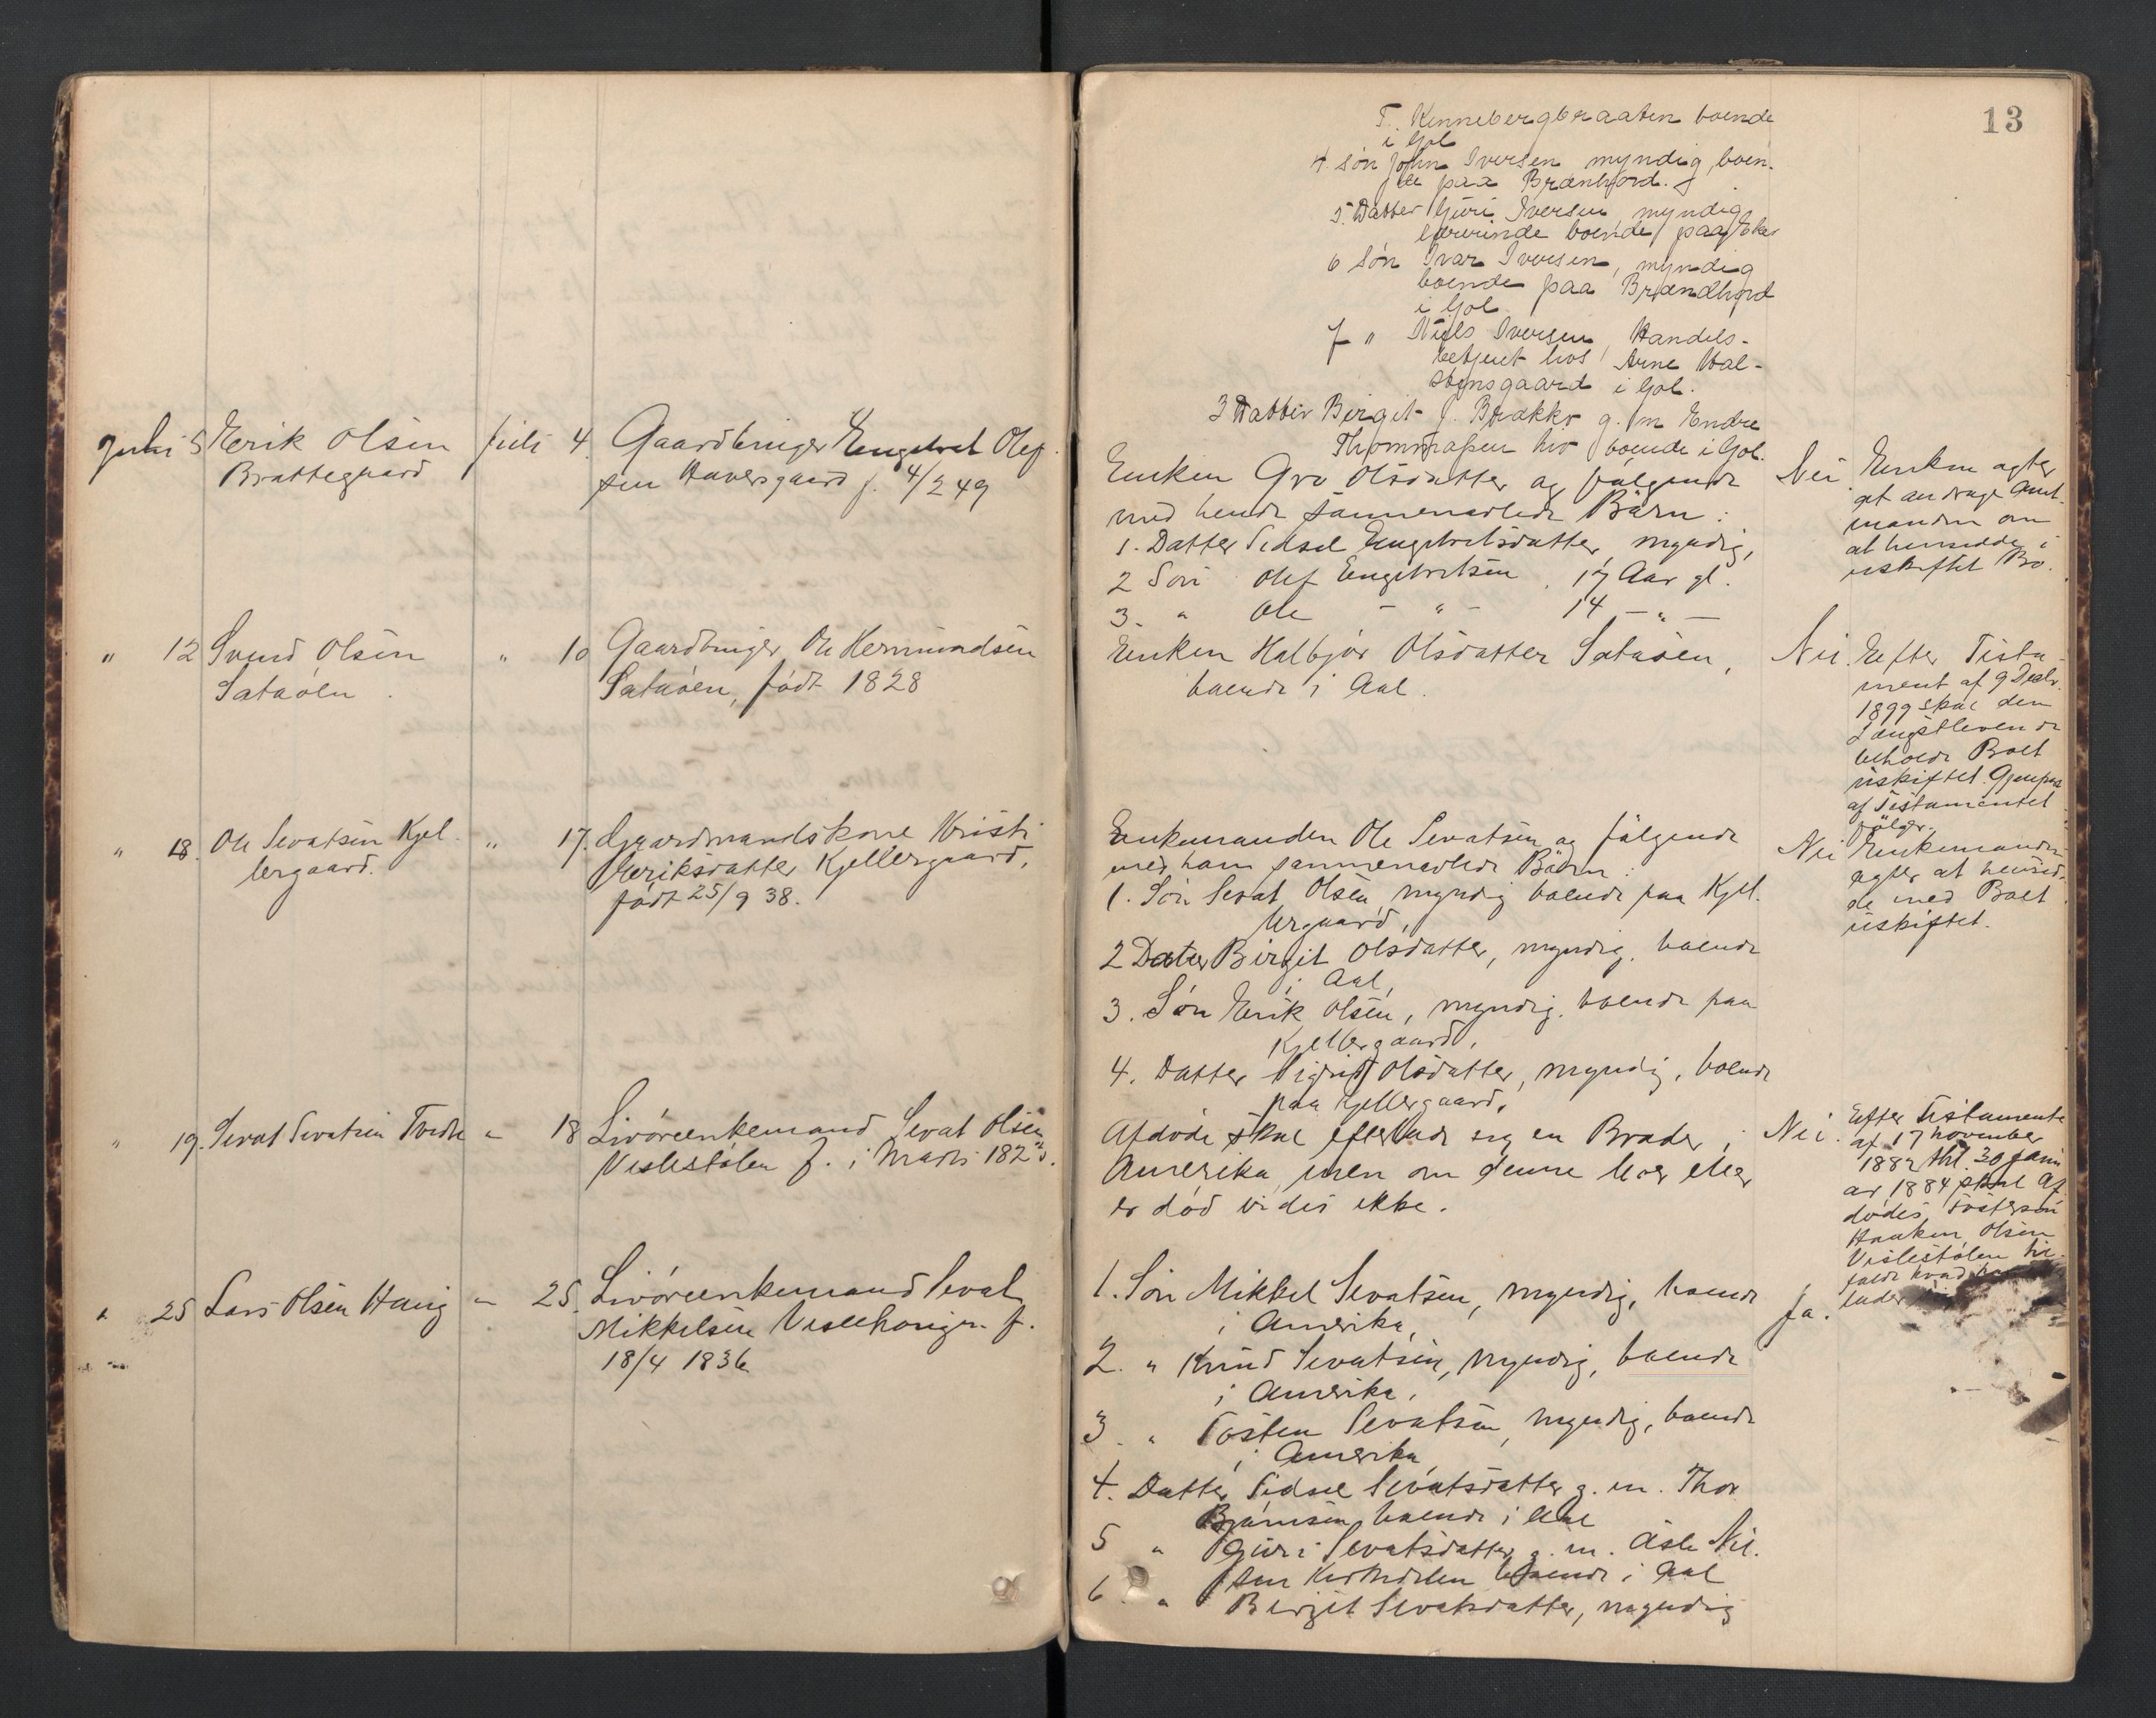 Juli 5 Erik Olsen Juli 4. Gaardbruger Engebret Olef-
Brattegaard sen Haversgaard f. 4/2 49
" 12 Svend Olsen " 10 Gaardbruger Ole Hermundsen
Sataøen. Sataøen, født 1828
" 18. Ole Sevatsen Kjel- " 17. Gaardmandskone Kristi
lergaard. Eriksdatter Kjellergaard,
født 25/9 38.
" 19. Sevat Sevatsen " 18 Livøreenkemand Sevat Olsen
Veslestølen f. i Marts 182
" 25 Lars Olsen Haug " 25. Livøreenkemand Sevat
Mikkelsen Veslehaugen f.
18/4 1836
13
T. Kinnebergbraaten boende
i Gol
4. Søn John Iversen myndig, boen-
de paa Brænhovd.
5. Datter Guri Iversen, myndig
lærerinde boende paa Eker
6 Søn Ivar Iversen, myndig
boende paa Brændhovd
i Gol
7 " Niels Iversen, Handels-
betjent hos Arne Hal-
stensgaard i Gol.
3 Datter Birgit J. Brakke g. m Endre
Thommasen boende i Gol.
Enken Gro Olsdatter og følgende Nei Enken agter
med hende sammenavlede Børn: at andrage Amt-
manden om
1. Datter Sidsel Engebretsdatter, myndig, at hensidde i
2 Søn Olef Engebretsen, 17 Aar gl. uskiftet Bo.
3. " Ole - " - 14 - " -
Enken Halbjør Olsdatter Sataøen, Nei. Efter Testa-
boende i Aal. ment af 9 Decbr.
1899 skal den
Længstlevende
beholde Boet
uskiftet. Gjenpart
af Testamentet
følger.
Enkemanden Ole Sevatsen og følgende Nei Enkemanden
med ham sammenavlede Børn: agter at hensid-
1. Søn Sevat Olsen, myndig boende paa Kjel- de med Boet
lergaard, uskiftet.
2 Datter Birgit Olsdatter, myndig, boende
i Aal,
3. Søn Erik Olsen, myndig, boende paa
Kjellergaard,
4. Datter Sigrid Olsdatter, myndig, boende
paa Kjellergaard.
Afdøde skal efterlade sig en Broder i Nei. Efter Testamente
Amerika, men om denne lever eller af 17 November
er død vides ikke. 1882 thl. 30 Janu
ar 1884 skal Af-
dødes Fostersøn
Haaken Olsen
Veslestølen til-
falde hvad
1. Søn Mikkel Sevatsen, myndig, boende Ja.
i Amerika,
2. " Knud Sevatsen, myndig, boende
i Amerika,
3. " Tosten Sevatsen, myndig, boende
i Amerika
4. Datter Sidsel Sevatsdatter g. m. Thor
Bjørnsen boende i Aal
5 " Guri Sevatsdatter g. m. Asle Nil-
sen boende i Aal
6. " Birgit Sevatsdatter, myndig